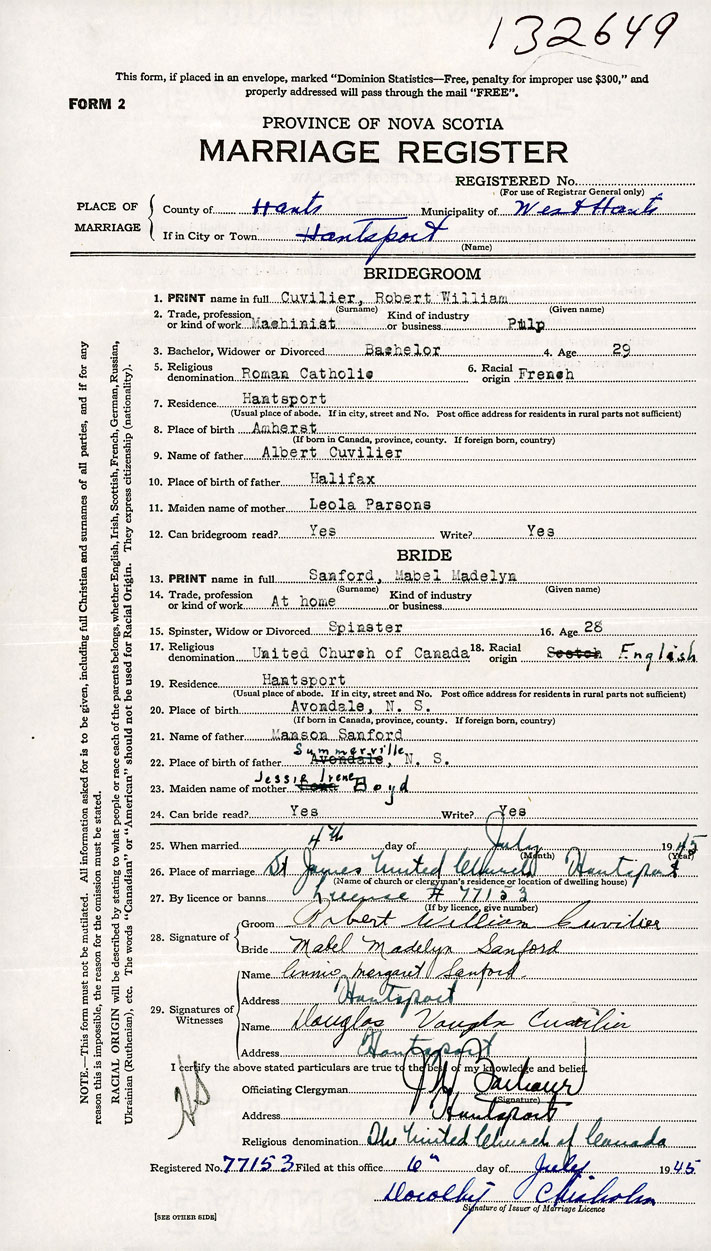 132649
This form, if placed in an envelope, marked "Dominion Statistics—Free, penalty for improper use $300," and
properly addressed will pass through the mail "FREE".
FORM 2
PROVINCE OF NOVA SCOTIA
MARRIAGE REGISTER
REGISTERED No.
(For use of Registrar General only)
PLACE OF MARRIAGE
County of Hants Municipality of West Hants
If in City or Town Hantsport
(Name)
BRIDEGROOM
1. PRINT name in full Cuvilier, Robert William
(Surname) (Given name)
2. Trade, profession or kind of work Machinist Kind of industry or business Pulp
3. Bachelor, Widower or Divorced Bachelor 4. Age 29
5. Religious denomination Roman Catholic 6. Racial origin French
7. Residence Hantsport
(Usual place of abode. If in city, street and No. Post office address for residents in rural parts not sufficient)
8. Place of birth Amherst
(If born in Canada, province, county. If foreign born, country)
9. Name of father Albert Cuvilier
10. Place of birth of father Halifax
11. Maiden name of mother Leola Parsons
12. Can bridegroom read? Yes Write? Yes
BRIDE
13. PRINT name in full Sanford, Mabel Madelyn
(Surname) (Given name)
14. Trade, profession or kind of work At home Kind of industry or business
15. Spinster, Widow or Divorced Spinster 16. Age 28
17. Religious denomination United Church of Canada 18. Racial origin Scotch English
19. Residence Hantsport
(Usual place of abode. If in city, street and No. Post office address for residents in rural parts not sufficient)
20. Place of birth Avondale, N. S.
(If born in Canada, province, county. If foreign born, country)
21. Name of father Manson Sanford
Summerville
22. Place of birth of father Avondale, N. S.
Jessie Irene
23. Maiden name of mother Boyd
24. Can bride read? Yes Write? Yes
25. When married 4th day of July 1945
(Month) (Year)
26. Place of marriage St James United Church Hantsport
(Name of church or clergyman's residence or location of dwelling house)
27. By licence or banns License # 77153
(If by licence, give number)
28. Signature of
Groom Robert William Cuvilier
Bride Mabel Madelyn Sanford
29. Signatures of Witnesses
Name Annie Margaret Sanford
Address Hantsport
Name Douglas Vaughn Cuvilier
Address Hantsport
I certify the above stated particulars are true to the best of my knowledge and belief.
Officiating Clergyman
(Signature)
Address Hantsport
Religious denomination The United Church of Canada
Registered No. 77153 Filed at this office 6th day of July 1945
Dorothy Chisholm
Signature of Issuer of Marriage Licence
[SEE OTHER SIDE]
NOTE.—This form must not be mutilated. All information asked for is to be given, including full Christian and surnames of all parties, and if for any
reason this is impossible, the reason for the omission must be stated.
RACIAL ORIGIN will be described by stating to what people or race each of the parents belongs, whether English, Irish, Scottish, French, German, Russian,
Ukrainian (Ruthenian), etc. The words "Canadian" or "American" should not be used for Racial Origin. They express citizenship (nationality).